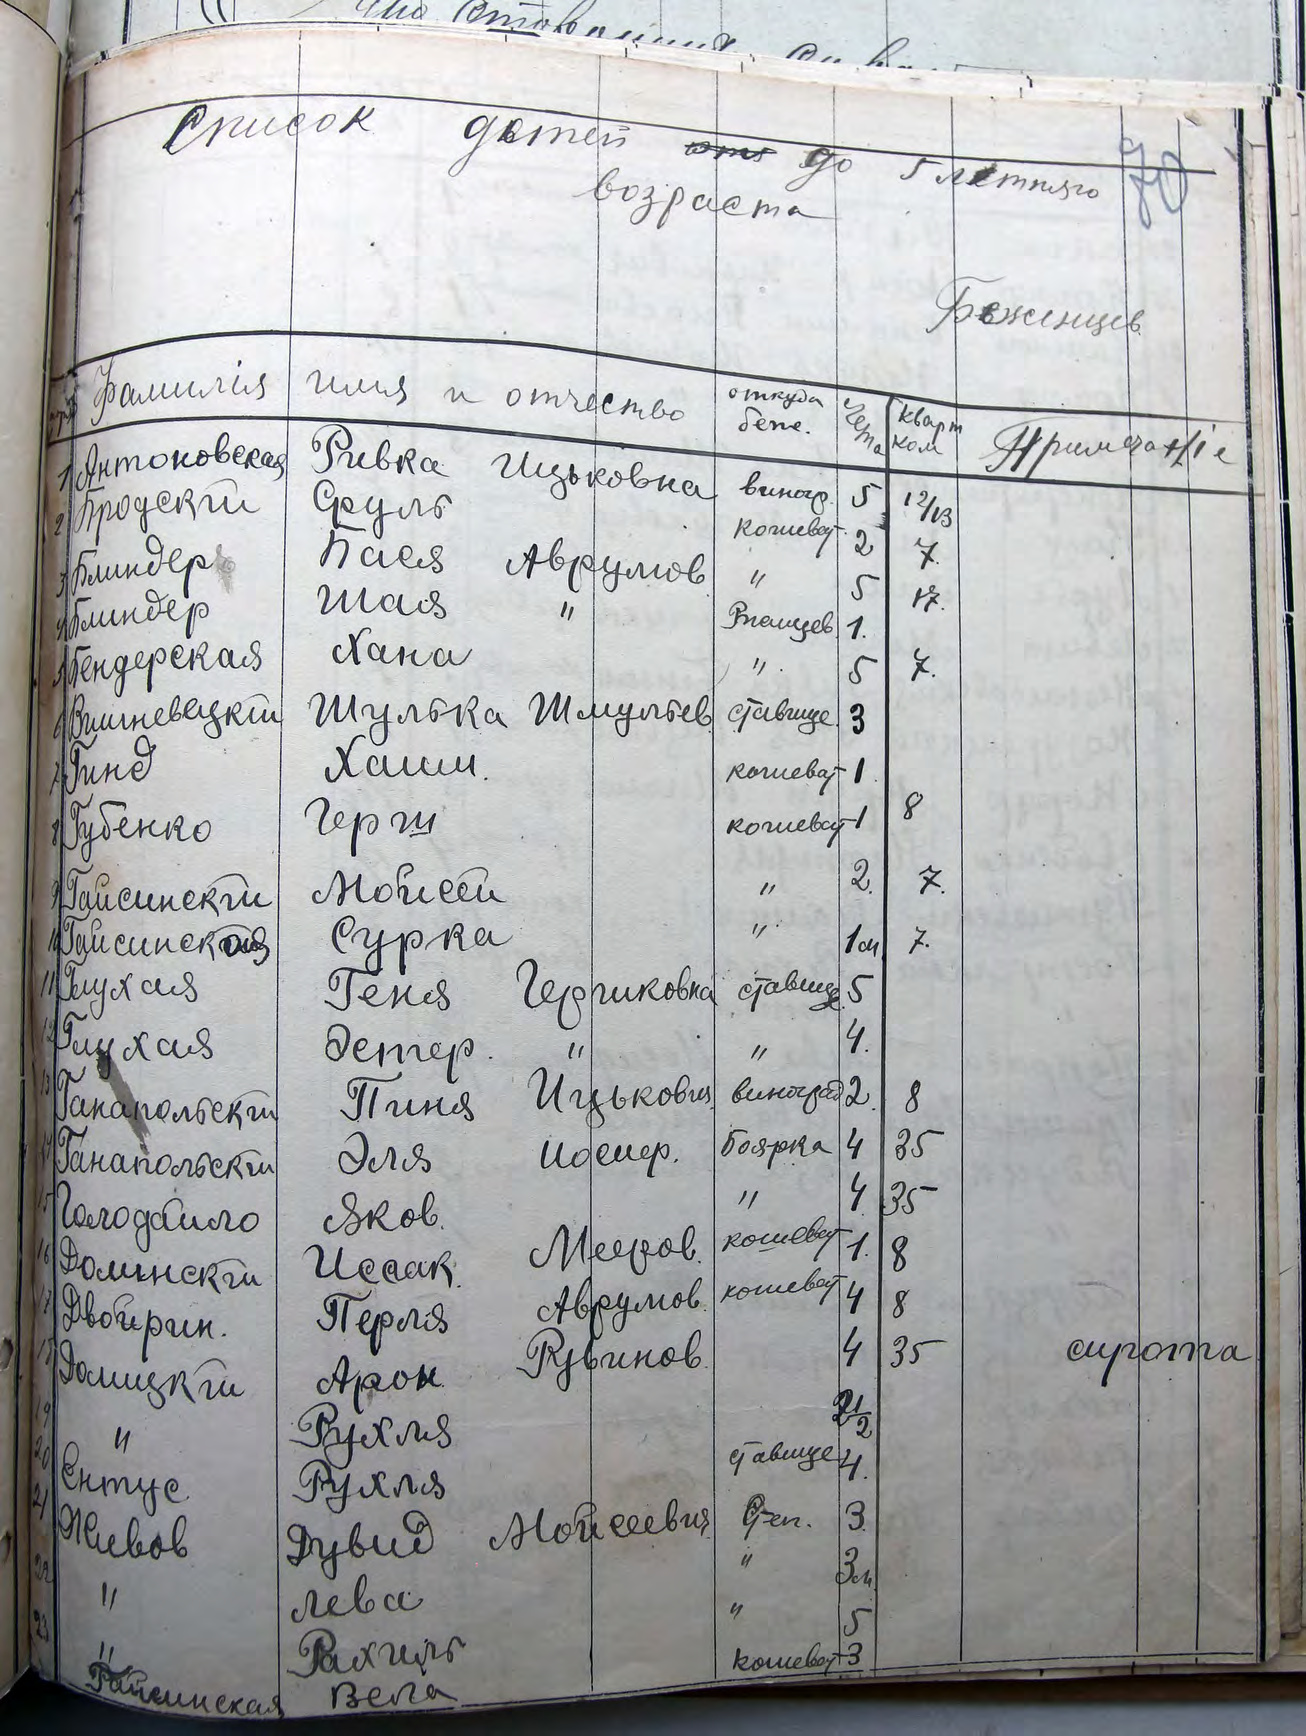 Список детей до 5 летняго
возраста
70
Беженцев
Фамилія имя и отчество откуда беже. лета кварт ком Примечаніе
1 Антоновская Ривка Ицьковна виногр. 5 12/13
2 Бродскій Сруль кошеват. 2 7.
3 Блиндер Бася Аврумов " 5 17.
4 Блиндер Шая " 1.
5 Бендерская Хана " 5 7.
6 Вишневецкій Шулька Шмульев ставище 3
7 Гинд Хаим. кошеват 1
8 Губенко Герш кошеват 1 8
9 Гайсинскій Мойсей " 2. 7.
10 Гайсинская Сурка " 1м 7.
11 Глухая Геня Гершковна ставище 5
12 Глухая Эстер. " " 4.
13 Ганапольскій Пиня Ицькович виноград 2. 8
14 Ганапольскій Эля Иосиер. Боярка 4 35
15 Голодайло Яков. " 4. 35
16 Долинскій Исаак. Мееров. кошеват 1. 8
17 Двойрин. Перля Аврумов. кошеват 4 8
18 Долицкій Арон Рувинов. 4 35 сирота
19 " Рухля 2 1/2
20 Ентус Рухля ставище 4.
21 Живов Дувид Мойсеевич Степ. 3.
22 " Лева " 3м.
23 " Рахиль " 5
Гайсинская Вела кошеват 3